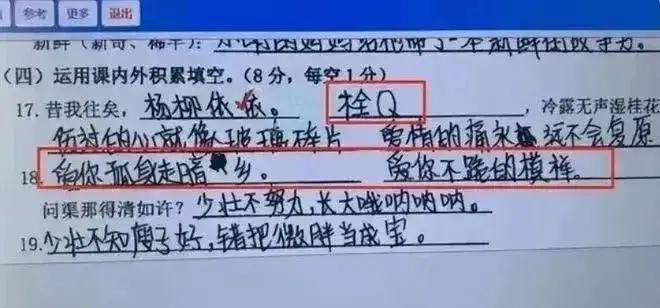 参考 更多 退出
新鲜（新奇、稀罕）： 妈妈给他带了一本新鲜的故事书。
（四）运用课内外积累填空。（8分，每空1分）
17. 昔我往矣，杨柳依依。 栓Q ，冷露无声湿桂花
伤过的心就像玻璃碎片 爱情的痛永远不会复原
18. 爱你孤身走暗乡。 爱你不跪的模样。
问渠那得清如许？少壮不努力，长大哦呐呐呐。
19. 少壮不知瘦子好，错把微胖当成宝。